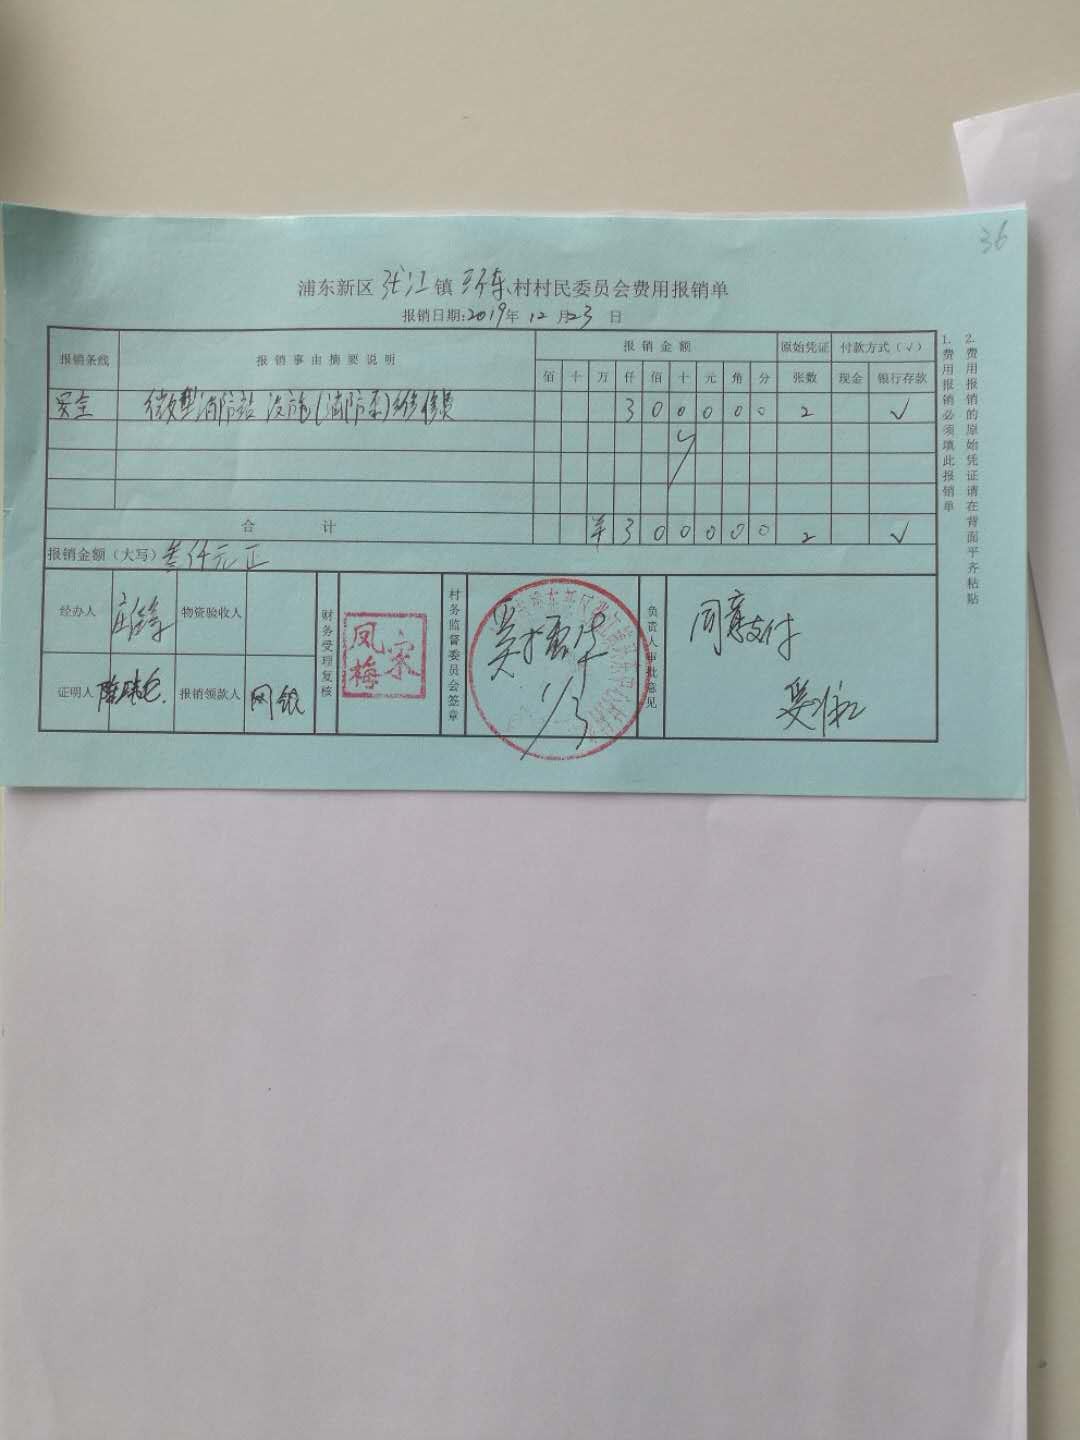 36
浦东新区 张江 镇 环东 村村民委员会费用报销单
报销日期:2019年 12 月23 日
报销条线 报销事由摘要说明 报销金额 原始凭证 付款方式(√)
佰 十 万 仟 佰 十 元 角 分 张数 现金 银行存款
安全 微型消防站设施(消防泵)维修费 3 0 0 0 0 0 2 √
合计 ¥ 3 0 0 0 0 0 2 √
报销金额(大写) 叁仟元正
经办人 物资验收人
证明人 报销领款人 网银
财务受理复核
宋凤梅
村务监督委员会签章
1/3
负责人审批意见
同意支付
1.费用报销必须填此报销单
2.费用报销的原始凭证请在背面平齐粘贴